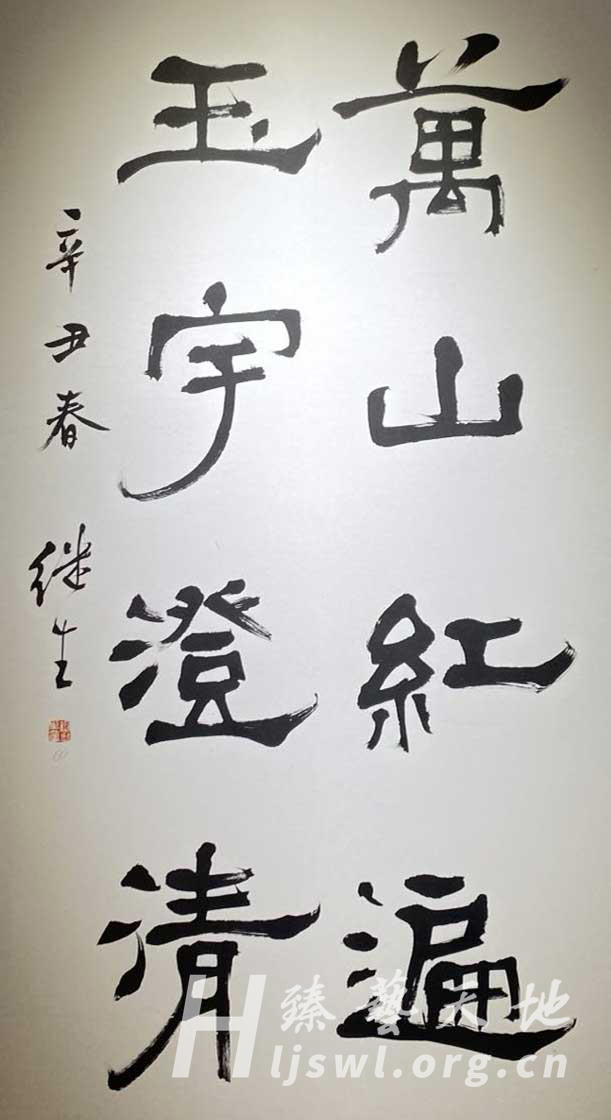 萬山紅遍
玉宇澄清
辛丑春 继生
臻藝天地
Hljswl.org.cn